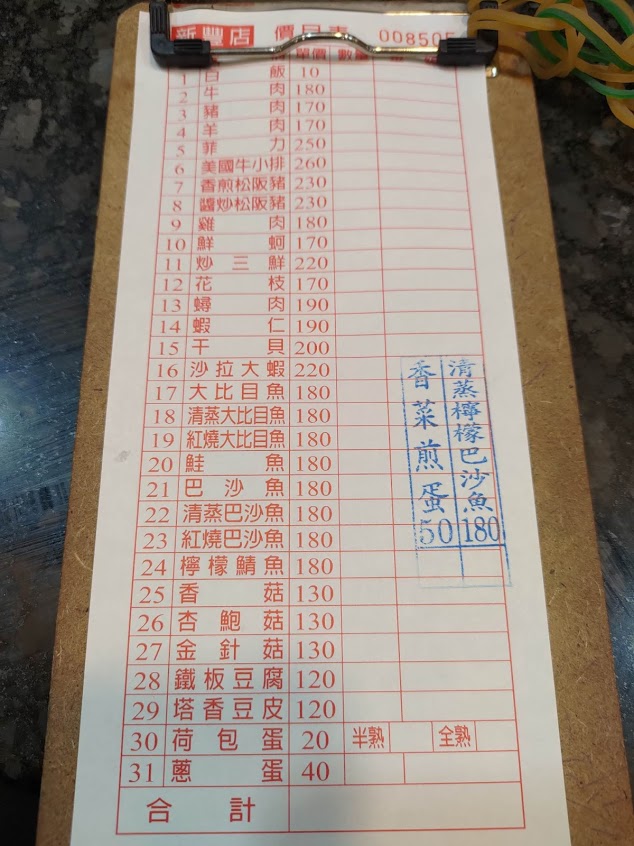 新豐店 價目表 008505
單價 數量
1 白飯 10
2 牛肉 180
3 豬肉 170
4 羊肉 170
5 菲力 250
6 美國牛小排 260
7 香煎松阪豬 230
8 醬炒松阪豬 230
9 雞肉 180
10 鮮蚵 170
11 炒三鮮 220
12 花枝 170
13 蟳肉 190
14 蝦仁 190
15 干貝 200
16 沙拉大蝦 220
17 大比目魚 180
18 清蒸大比目魚 180
19 紅燒大比目魚 180
20 鮭魚 180
21 巴沙魚 180
22 清蒸巴沙魚 180
23 紅燒巴沙魚 180
24 檸檬鯖魚 180
25 香菇 130
26 杏鮑菇 130
27 金針菇 130
28 鐵板豆腐 120
29 塔香豆皮 120
30 荷包蛋 20 半熟 全熟
31 蔥蛋 40
合計
清蒸檸檬巴沙魚 180
香菜煎蛋 50